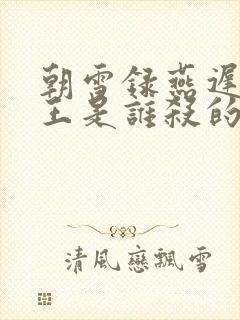 朝雪録燕遲
王是誰殺的
清風戀飄雪